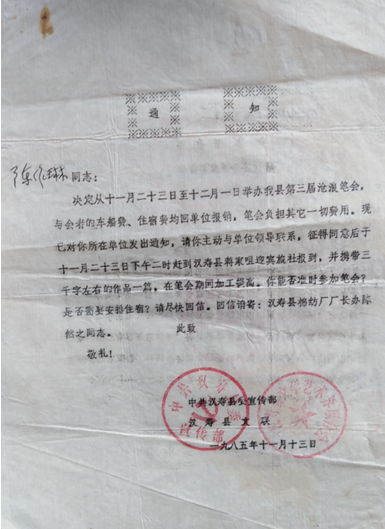 通 知
陈 同志：
决定从十一月二十三日至十二月一日举办我县第三届沧浪笔会，
与会者的车船费、住宿费均回单位报销，笔会负担其它一切费用。现
已对你所在单位发出通知，请你主动与单位领导联系，征得同意后于
十一月二十三日下午二时赶到汉寿县蒋家咀迎宾旅社报到，并携带三
千字左右的作品一篇，在笔会期间加工提高。你能否准时参加笔会？
是否需要安排住宿？请尽快回信。回信请寄：汉寿县棉纺厂厂长办
之同志。 此致
敬礼！
中共汉寿县委宣传部
汉寿县文联
一九八五年十一月十三日
中共汉寿 宣传部